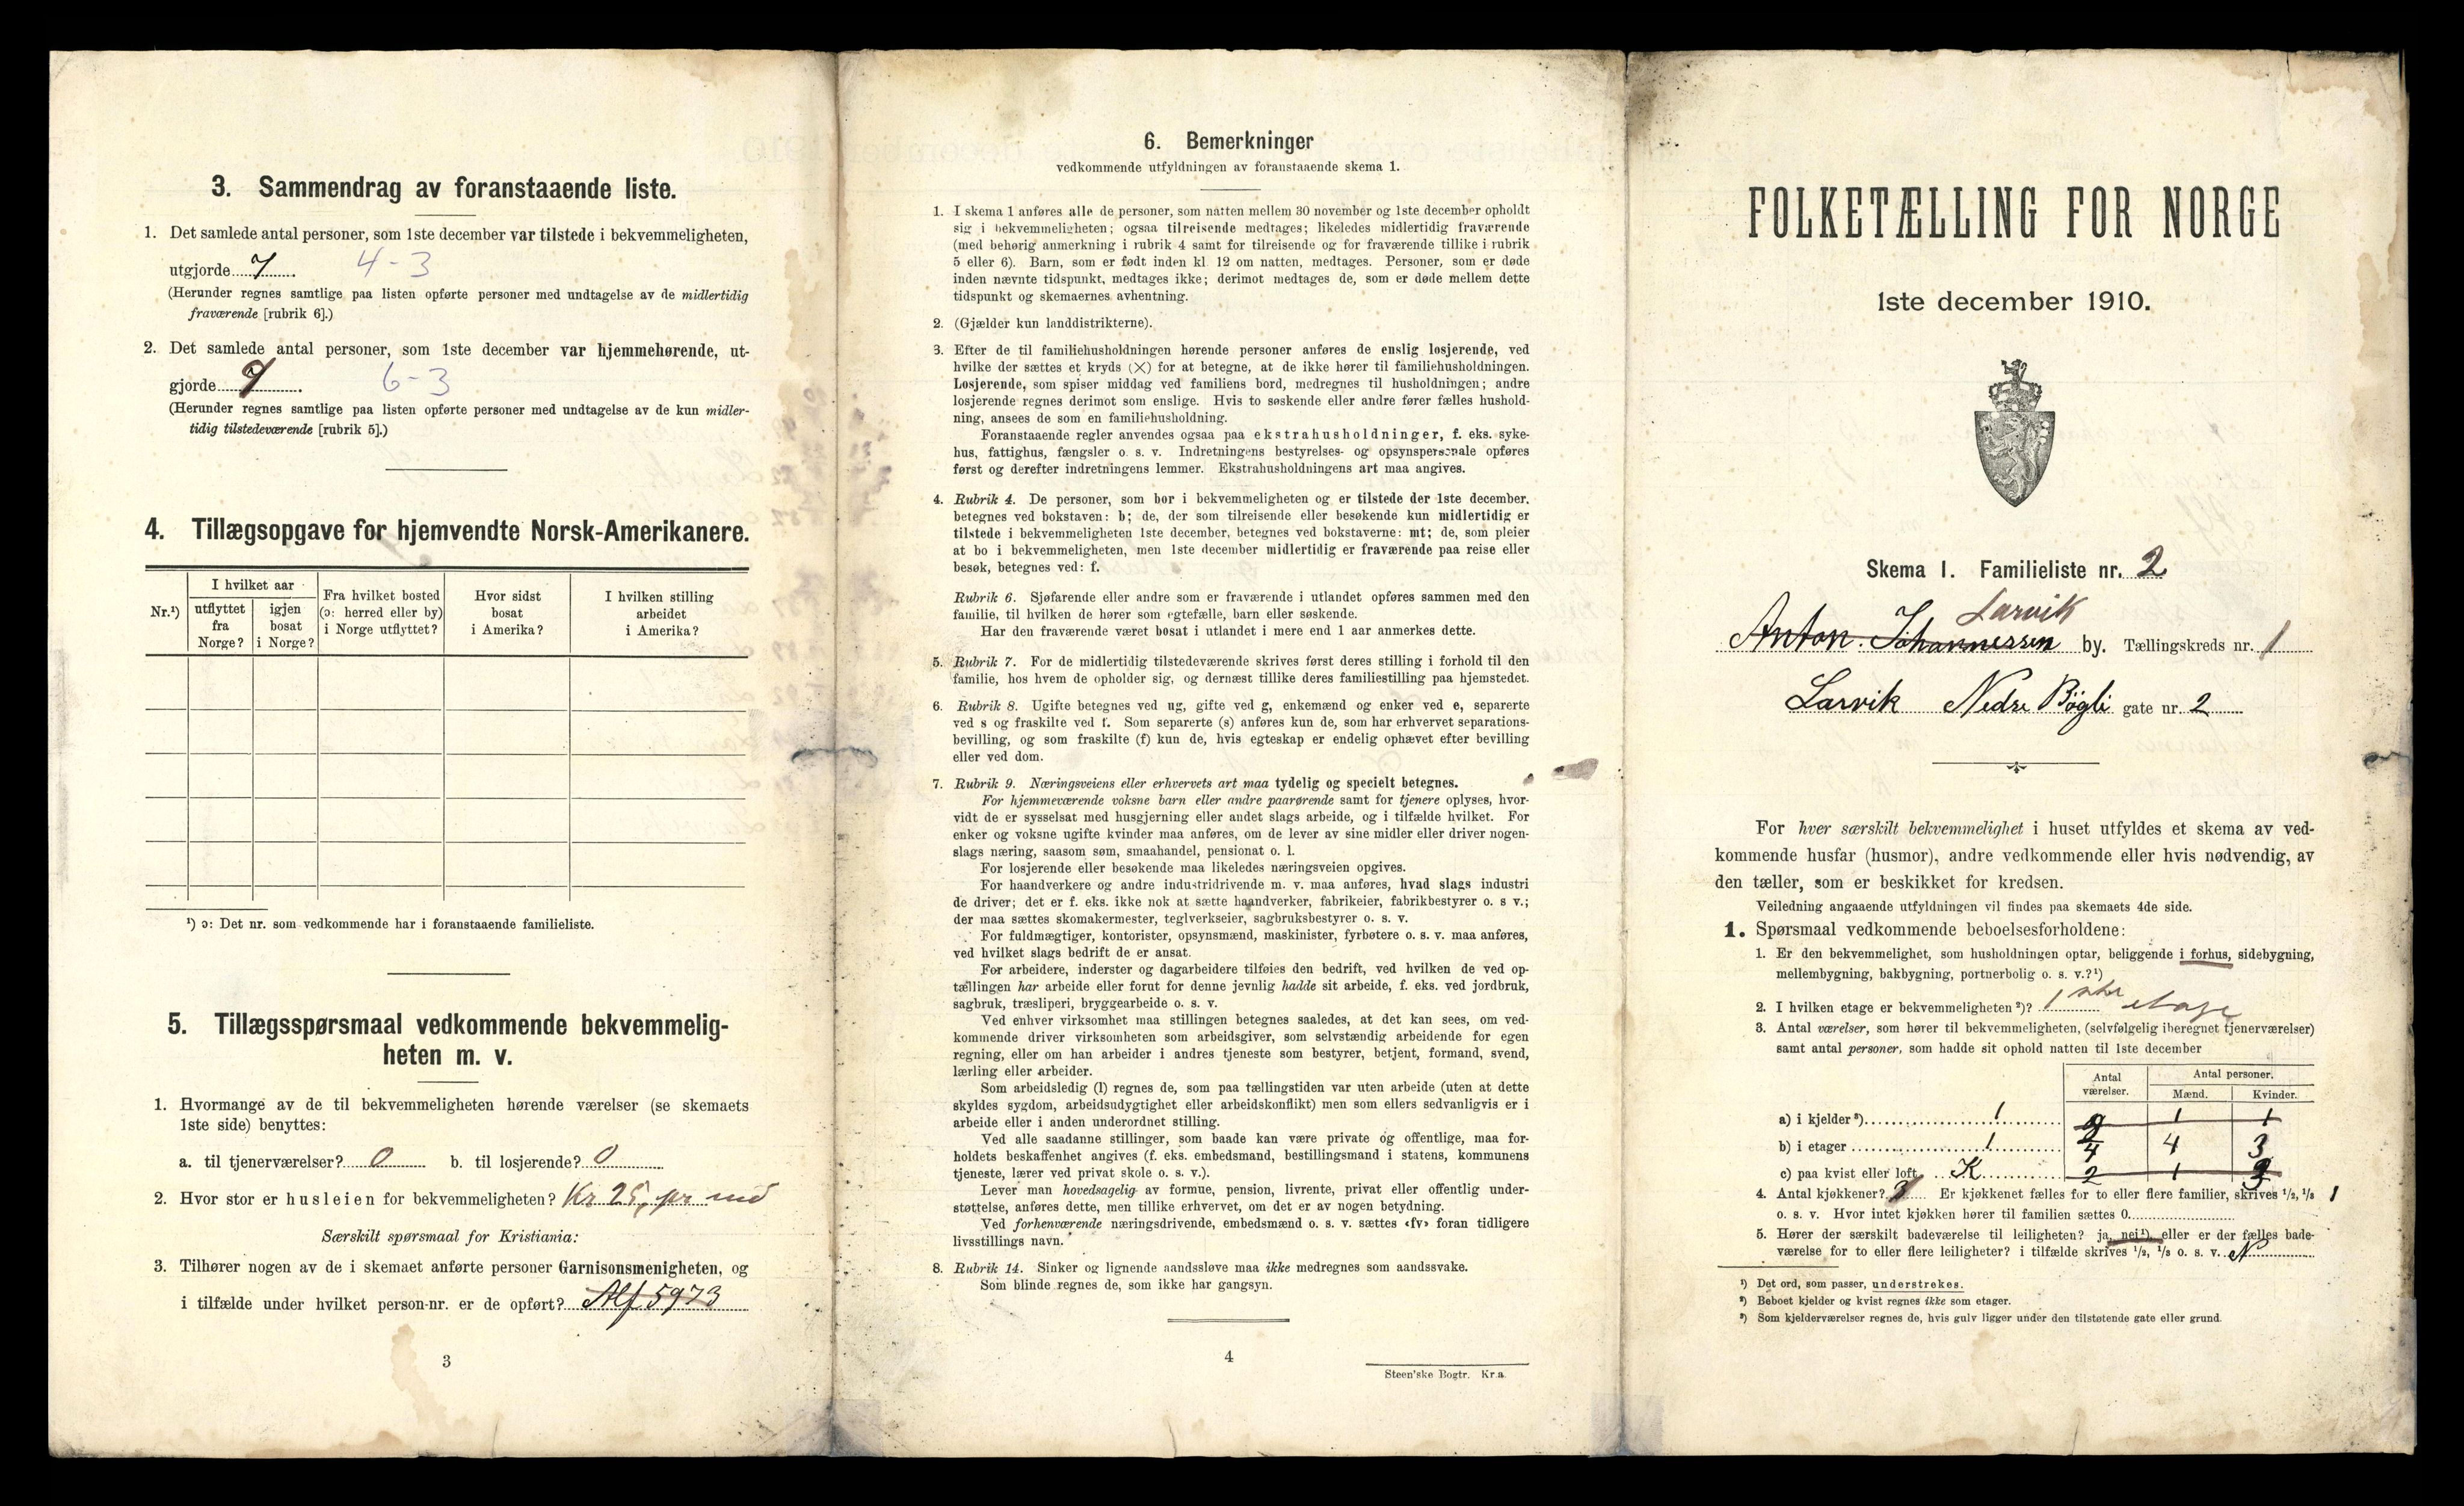 3. Sammendrag av foranstaaende liste.
1. Det samlede antal personer, som 1ste december var tilstede i bekvemmeligheten,
utgjorde 7 4-3
(Herunder regnes samtlige paa listen opførte personer med undtagelse av de midlertidig
fraværende [rubrik 6].)
2. Det samlede antal personer, som 1ste december var hjemmehørende, ut-
gjorde 9 6-3
(Herunder regnes samtlige paa listen opførte personer med undtagelse av de kun midler-
tidig tilstedeværende [rubrik 5].)
4. Tillægsopgave for hjemvendte Norsk-Amerikanere.
Nr.¹)
I hvilket aar
utflyttet
fra
Norge?
igjen
bosat
i Norge?
Fra hvilket bosted
(ɔ: herred eller by)
i Norge utflyttet?
Hvor sidst
bosat
i Amerika?
I hvilken stilling
arbeidet
i Amerika?
¹) ɔ: Det nr. som vedkommende har i foranstaaende familieliste.
5. Tillægsspørsmaal vedkommende bekvemmelig-
heten m. v.
1. Hvormange av de til bekvemmeligheten hørende værelser (se skemaets
1ste side) benyttes:
a. til tjenerværelser? 0 b. til losjerende? 0
2. Hvor stor er husleien for bekvemmeligheten? Kr 25, pr md
Særskilt spørsmaal for Kristiania:
3. Tilhører nogen av de i skemaet anførte personer Garnisonsmenigheten, og
i tilfælde under hvilket person-nr. er de opført? Alf 5973
3
6. Bemerkninger
vedkommende utfyldningen av foranstaaende skema 1.
1. I skema 1 anføres alle de personer, som natten mellem 30 november og 1ste december opholdt
sig i bekvemmeligheten; ogsaa tilreisende medtages; likeledes midlertidig fraværende
(med behørig anmerkning i rubrik 4 samt for tilreisende og for fraværende tillike i rubrik
5 eller 6). Barn, som er født inden kl. 12 om natten, medtages. Personer, som er døde
inden nævnte tidspunkt, medtages ikke; derimot medtages de, som er døde mellem dette
tidspunkt og skemaernes avhentning.
2. (Gjælder kun landdistrikterne).
3. Efter de til familiehusholdningen hørende personer anføres de enslig losjerende, ved
hvilke der sættes et kryds (×) for at betegne, at de ikke hører til familiehusholdningen.
Losjerende, som spiser middag ved familiens bord, medregnes til husholdningen; andre
losjerende regnes derimot som enslige. Hvis to søskende eller andre fører fælles hushold-
ning, ansees de som en familiehusholdning.
Foranstaaende regler anvendes ogsaa paa ekstrahusholdninger, f. eks. syke-
hus, fattighus, fængsler o. s. v. Indretningens bestyrelses- og opsynspersonale opføres
først og derefter indretningens lemmer. Ekstrahusholdningens art maa angives.
4. Rubrik 4. De personer, som bor i bekvemmeligheten og er tilstede der 1ste december,
betegnes ved bokstaven: b; de, der som tilreisende eller besøkende kun midlertidig er
tilstede i bekvemmeligheten 1ste december, betegnes ved bokstaverne: mt; de, som pleier
at bo i bekvemmeligheten, men 1ste december midlertidig er fraværende paa reise eller
besøk, betegnes ved: f.
Rubrik 6. Sjøfarende eller andre som er fraværende i utlandet opføres sammen med den
familie, til hvilken de hører som egtefælle, barn eller søskende.
Har den fraværende været bosat i utlandet i mere end 1 aar anmerkes dette.
5. Rubrik 7. For de midlertidig tilstedeværende skrives først deres stilling i forhold til den
familie, hos hvem de opholder sig, og dernæst tillike deres familiestilling paa hjemstedet.
6. Rubrik 8. Ugifte betegnes ved ug, gifte ved g, enkemænd og enker ved e, separerte
ved s og fraskilte ved f. Som separerte (s) anføres kun de, som har erhvervet separations-
bevilling, og som fraskilte (f) kun de, hvis egteskap er endelig ophævet efter bevilling
eller ved dom.
7. Rubrik 9. Næringsveiens eller erhvervets art maa tydelig og specielt betegnes.
For hjemmeværende voksne barn eller andre paarørende samt for tjenere oplyses, hvor-
vidt de er sysselsat med husgjerning eller andet slags arbeide, og i tilfælde hvilket. For
enker og voksne ugifte kvinder maa anføres, om de lever av sine midler eller driver nogen-
slags næring, saasom søm, smaahandel, pensionat o. l.
For losjerende eller besøkende maa likeledes næringsveien opgives.
For haandverkere og andre industridrivende m. v. maa anføres, hvad slags industri
de driver; det er f. eks. ikke nok at sætte haandverker, fabrikeier, fabrikbestyrer o. s v.;
der maa sættes skomakermester, teglverkseier, sagbruksbestyrer o. s. v.
For fuldmægtiger, kontorister, opsynsmænd, maskinister, fyrbøtere o. s. v. maa anføres,
ved hvilket slags bedrift de er ansat.
For arbeidere, inderster og dagarbeidere tilføies den bedrift, ved hvilken de ved op-
tællingen har arbeide eller forut for denne jevnlig hadde sit arbeide, f. eks. ved jordbruk,
sagbruk, træsliperi, bryggearbeide o. s. v.
Ved enhver virksomhet maa stillingen betegnes saaledes, at det kan sees, om ved-
kommende driver virksomheten som arbeidsgiver, som selvstændig arbeidende for egen
regning, eller om han arbeider i andres tjeneste som bestyrer, betjent, formand, svend,
lærling eller arbeider.
Som arbeidsledig (l) regnes de, som paa tællingstiden var uten arbeide (uten at dette
skyldes sygdom, arbeidsudygtighet eller arbeidskonflikt) men som ellers sedvanligvis er i
arbeide eller i anden underordnet stilling.
Ved alle saadanne stillinger, som baade kan være private og offentlige, maa for-
holdets beskaffenhet angives (f. eks. embedsmand, bestillingsmand i statens, kommunens
tjeneste, lærer ved privat skole o. s. v.).
Lever man hovedsagelig av formue, pension, livrente, privat eller offentlig under-
støttelse, anføres dette, men tillike erhvervet, om det er av nogen betydning.
Ved forhenværende næringsdrivende, embedsmænd o. s. v. sættes «fv» foran tidligere
livsstillings navn.
8. Rubrik 14. Sinker og lignende aandssløve maa ikke medregnes som aandssvake.
Som blinde regnes de, som ikke har gangsyn.
4
Steen'ske Bogtr. Kr.a.
FOLKETÆLLING FOR NORGE
1ste december 1910.
Skema 1. Familieliste nr. 2
Larvik
Anton Johannessen by. Tællingskreds nr. 1
Larvik Nedre Bøgli gate nr. 2
For hver særskilt bekvemmelighet i huset utfyldes et skema av ved-
kommende husfar (husmor), andre vedkommende eller hvis nødvendig, av
den tæller, som er beskikket for kredsen.
Veiledning angaaende utfyldningen vil findes paa skemaets 4de side.
1. Spørsmaal vedkommende beboelsesforholdene:
1. Er den bekvemmelighet, som husholdningen optar, beliggende i forhus, sidebygning,
mellembygning, bakbygning, portnerbolig o. s. v.?¹)
2. I hvilken etage er bekvemmeligheten²)? 1 ste etage
3. Antal værelser, som hører til bekvemmeligheten, (selvfølgelig iberegnet tjenerværelser)
samt antal personer, som hadde sit ophold natten til 1ste december
Antal
værelser.
Antal personer.
Mænd. Kvinder.
a) i kjelder³) 1 2 1 1
b) i etager 1 4 4 3
c) paa kvist eller loft K 2 1 3
4. Antal kjøkkener? 3 Er kjøkkenet fælles for to eller flere familier, skrives 1/2, 1/3 1
o. s. v. Hvor intet kjøkken hører til familien sættes 0.
5. Hører der særskilt badeværelse til leiligheten? ja, nei¹), eller er der fælles bade-
værelse for to eller flere leiligheter? i tilfælde skrives 1/2, 1/3 o. s. v. N
¹) Det ord, som passer, understrekes.
²) Beboet kjelder og kvist regnes ikke som etager.
³) Som kjelderværelser regnes de, hvis gulv ligger under den tilstøtende gate eller grund.